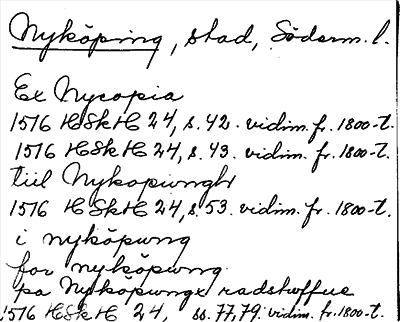 Nyköping, stad, Söderm. l.
Ex Nycopia
1576 HSkH 24, s. 42. vidim. fr. 1800-t.
1576 HSkH 24, s. 43. vidim. fr. 1800-t.
tiil Nykopiungh
1576 HSkH 24, s. 53. vidim. fr. 1800-t.
i nyköpung
for nyköpung
pa Nyköpungx radstuffue
1576 HSkH 24, ss. 77, 79. vidim. fr. 1800-t.